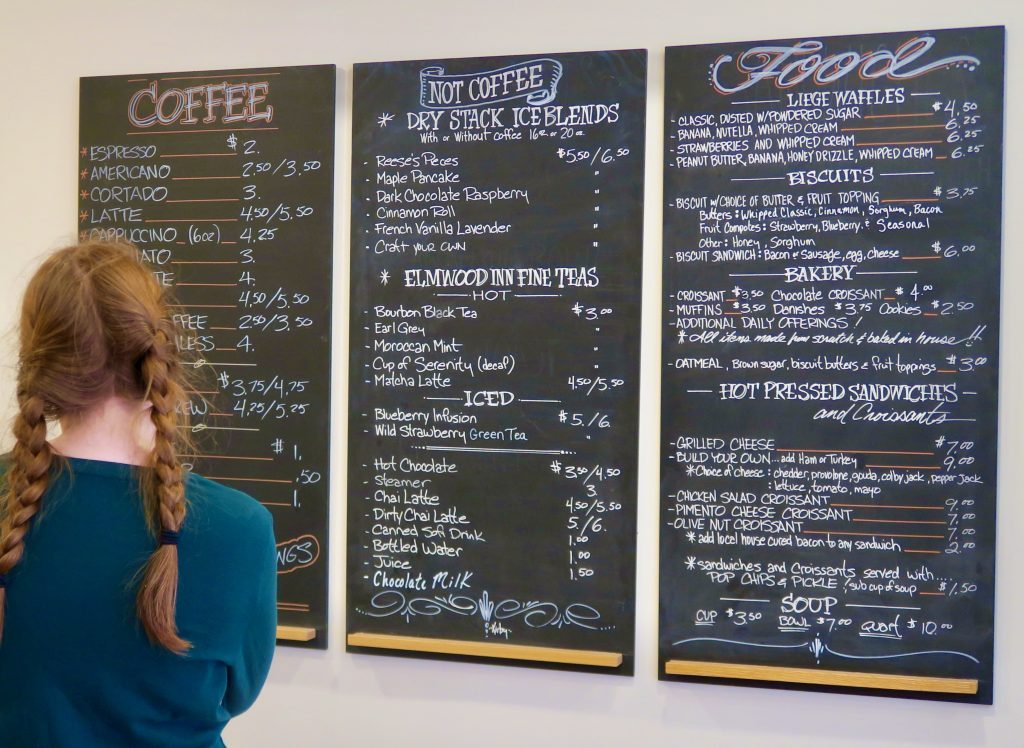 COFFEE
* ESPRESSO $2.
* AMERICANO 2.50/3.50
* CORTADO 3.
* LATTE 4.50/5.50
CAPPUCCINO (6oz) 4.25
ATO 3.
TE 4.
4.50/5.50
FFEE 2.50/3.50
LESS 4.
$3.75/4.75
REW 4.25/5.25
$1.
.50
1.
NOT COFFEE
* DRY STACK ICE BLENDS
With or Without coffee 16oz or 20oz.
- Reese's Peces $5.50/6.50
- Maple Pancake "
- Dark Chocolate Raspberry "
- Cinnamon Roll "
- French Vanilla Lavender "
- Craft your own "
* ELMWOOD INN FINE TEAS
HOT
- Bourbon Black Tea $3.00
- Earl Grey "
- Moroccan Mint "
- Cup of Serenity (decaf) "
- Matcha Latte 4.50/5.50
ICED
- Blueberry Infusion $5./6.
- Wild Strawberry Green Tea "
- Hot Chocolate $3.50/4.50
- Steamer 3.
- Chai Latte 4.50/5.50
- Dirty Chai Latte 5./6.
- Canned Soft Drink 1.00
- Bottled Water 1.00
- Juice 1.50
- Chocolate Milk
Food
LIEGE WAFFLES
- CLASSIC, DUSTED W/POWDERED SUGAR $4.50
- BANANA, NUTELLA, WHIPPED CREAM 6.25
- STRAWBERRIES AND WHIPPED CREAM 6.25
- PEANUT BUTTER, BANANA, HONEY DRIZZLE, WHIPPED CREAM 6.25
BISCUITS
- BISCUIT W/CHOICE OF BUTTER & FRUIT TOPPING $3.75
Butters: Whipped Classic, Cinnamon, Sorghum, Bacon
Fruit Compotes: Strawberry, Blueberry, & Seasonal
Other: Honey, Sorghum
- BISCUIT SANDWICH: Bacon or Sausage, egg, cheese $6.00
BAKERY
- CROISSANT $3.50 Chocolate CROISSANT $4.00
- MUFFINS $3.50 Danishes $3.75 Cookies $2.50
- ADDITIONAL DAILY OFFERINGS!
* All items made from scratch & baked in house!!
- OATMEAL, Brown sugar, biscuit butters & fruit toppings $3.00
HOT PRESSED SANDWICHES
and Croissants
- GRILLED CHEESE $7.00
- BUILD YOUR OWN... add Ham or Turkey 9.00
* Choice of cheese: chedder, provolone, gouda, colby jack, pepper jack
: lettuce, tomato, mayo
- CHICKEN SALAD CROISSANT 9.00
- PIMENTO CHEESE CROISSANT 7.00
- OLIVE NUT CROISSANT 7.00
* add local house cured bacon to any sandwich 2.00
* sandwiches and Croissants served with....
POP CHIPS & PICKLE / sub cup of soup $1.50
SOUP
CUP $3.50 BOWL $7.00 QUART $10.00